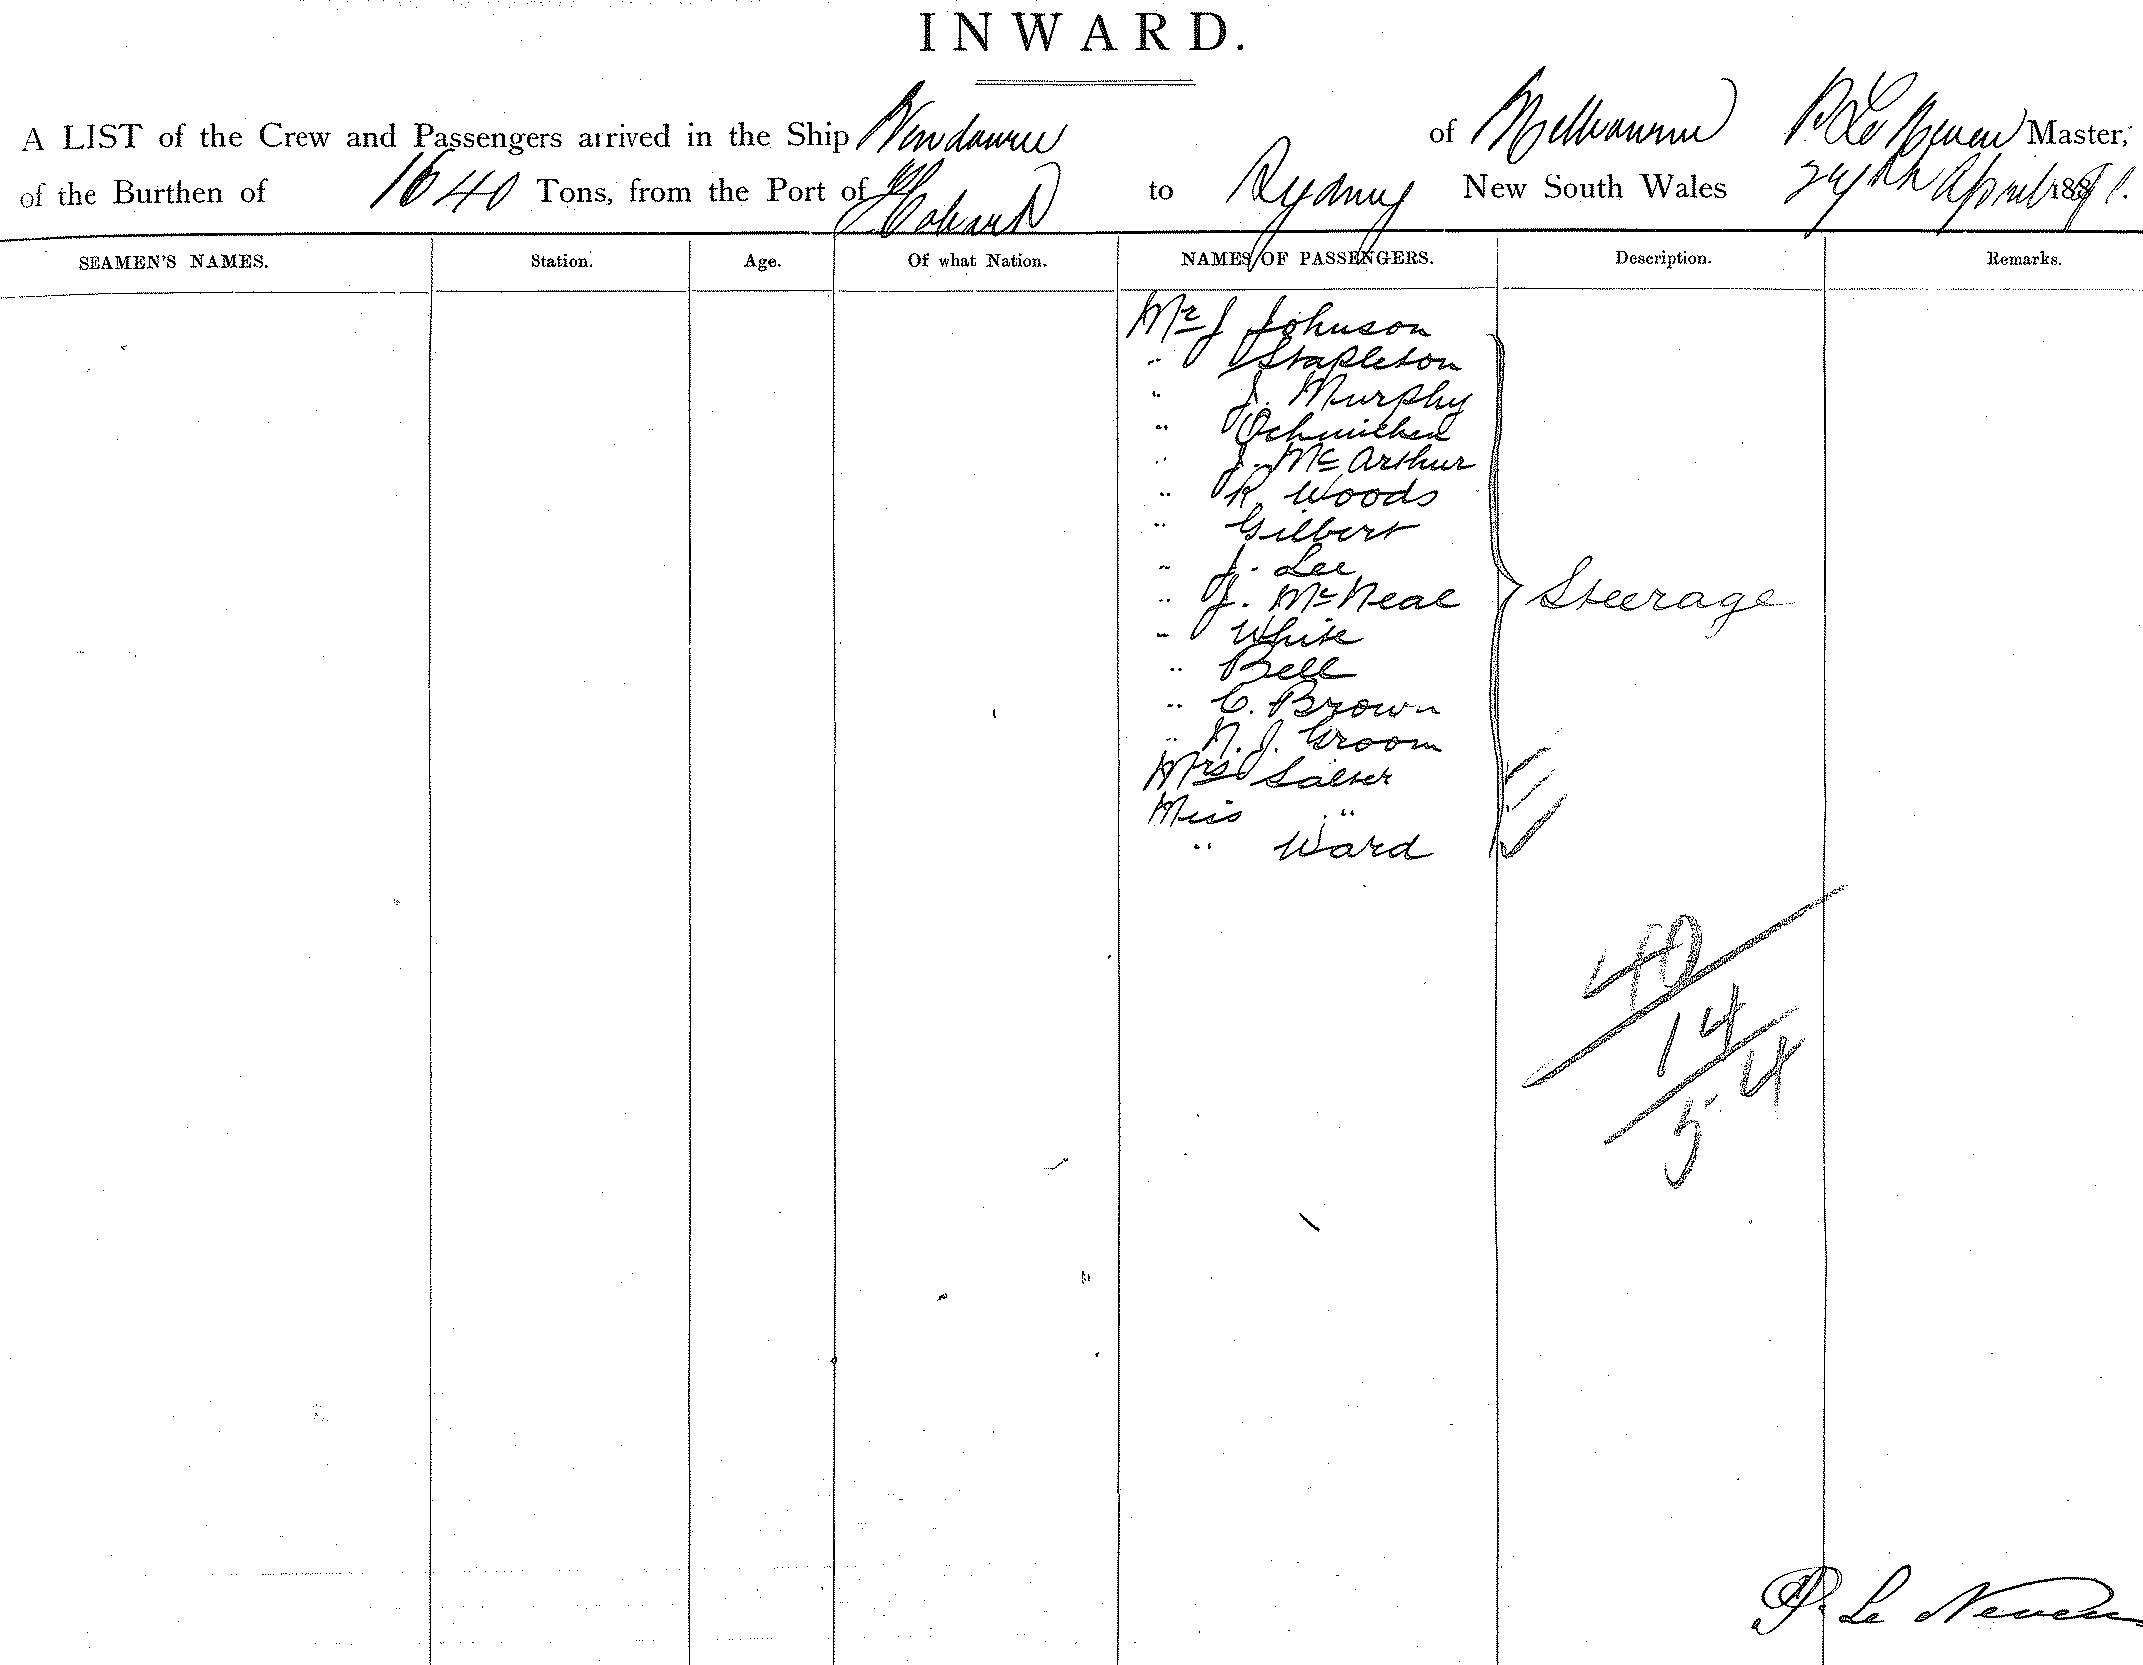 INWARD.
A LIST of the Crew and Passengers arrived in the Ship of Melbourne P Le Neven Master,
of the Burthen of 1640 Tons, from the Port of Hobart to Sydney New South Wales April 1891.
SEAMEN'S NAMES. Station. Age. Of what Nation. NAMES OF PASSENGERS. Description. Remarks.
Mr J Johnson
" Stapleton
" J. Murphy
"
" J. Mc Arthur
" R. Woods
" Gilbert
" J. Lee
" J. Mc Neal Steerage
" White
" Bell
" C. Brown
" N. J. Groom
Mrs Salter
Miss "
" Ward
40
14
4
5
P. Le Neven